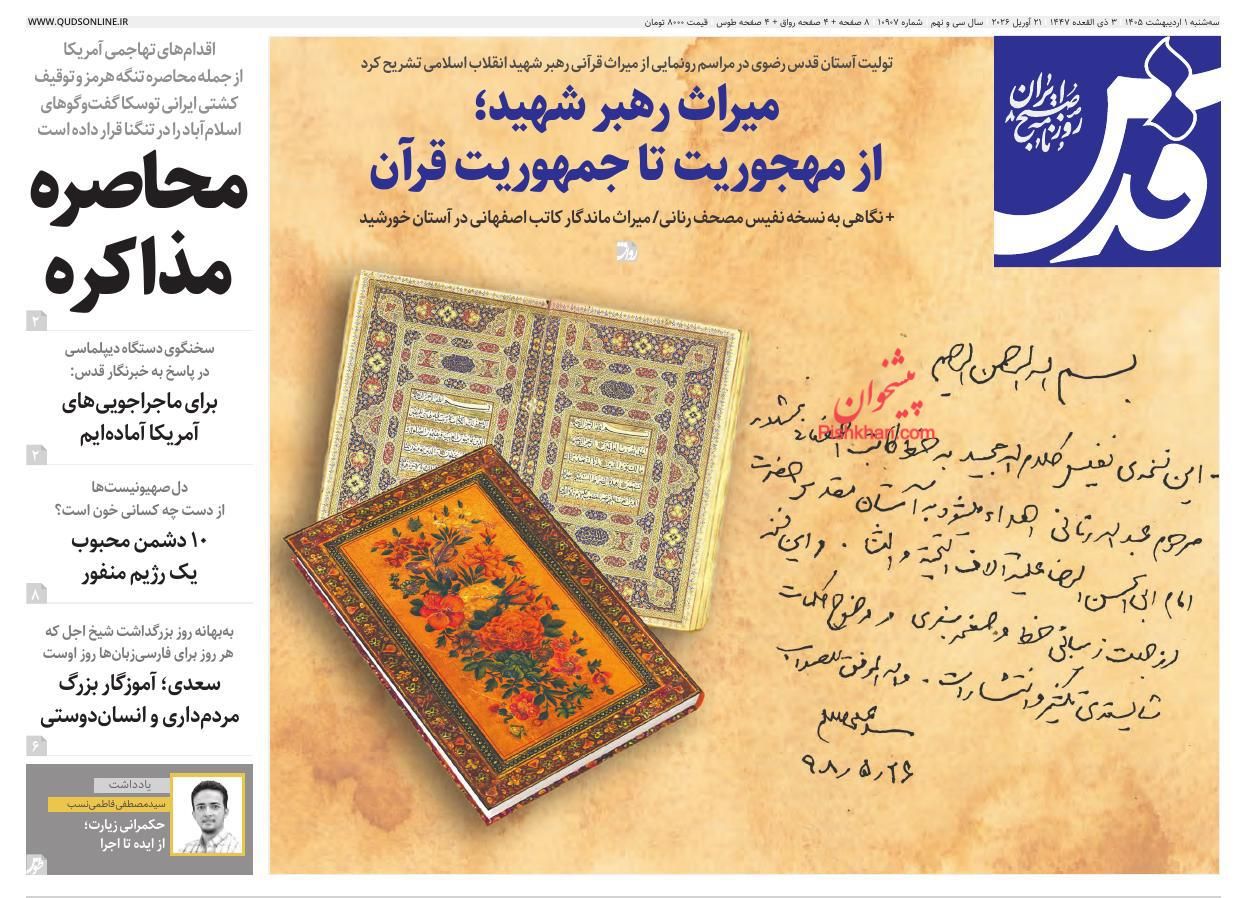 سه‌شنبه ۱ اردیبهشت ۱۴۰۵ ۳ ذی القعده ۱۴۴۷ ۲۱ آوریل ۲۰۲۶ سال سی و نهم شماره ۱۰۹۰۷ ۸ صفحه + ۴ صفحه رواق + ۴ صفحه طوس قیمت ۸۰۰۰ تومان
WWW.QUDSONLINE.IR
قدس
روزنامه صبح ایران
تولیت آستان قدس رضوی در مراسم رونمایی از میراث قرآنی رهبر شهید انقلاب اسلامی تشریح کرد
میراث رهبر شهید؛
از مهجوریت تا جمهوریت قرآن
+ نگاهی به نسخه نفیس مصحف رنانی/ میراث ماندگار کاتب اصفهانی در آستان خورشید
رواق
بسم الله الرحمن الرحیم
- این نسخه‌ی نفیس کلام الله مجید به خط کاتب
مرحوم عبدالله رنانی اهداء میشود به آستان مقدس حضرت
امام ابی‌الحسن الرضا علیه آلاف التحیة و الثنا . و این نسخه
از جهت زیبائی خط و صفحه‌بندی و وضوح کلمات
شایسته‌ی تکثیر و انتشار است . والله الموفق للصواب
۹۸٫۵٫۲۶
پیشخوان
Pishkhan.com
اقدام‌های تهاجمی آمریکا
از جمله محاصره تنگه هرمز و توقیف
کشتی ایرانی توسکا گفت‌وگوهای
اسلام‌آباد را در تنگنا قرار داده است
محاصره
مذاکره
۲
سخنگوی دستگاه دیپلماسی
در پاسخ به خبرنگار قدس:
برای ماجراجویی‌های
آمریکا آماده‌ایم
۲
دل صهیونیست‌ها
از دست چه کسانی خون است؟
۱۰ دشمن محبوب
یک رژیم منفور
۸
به‌بهانه روز بزرگداشت شیخ اجل که
هر روز برای فارسی‌زبان‌ها روز اوست
سعدی؛ آموزگار بزرگ
مردم‌داری و انسان‌دوستی
۶
یادداشت
سیدمصطفی فاطمی‌نسب
حکمرانی زیارت؛
از ایده تا اجرا